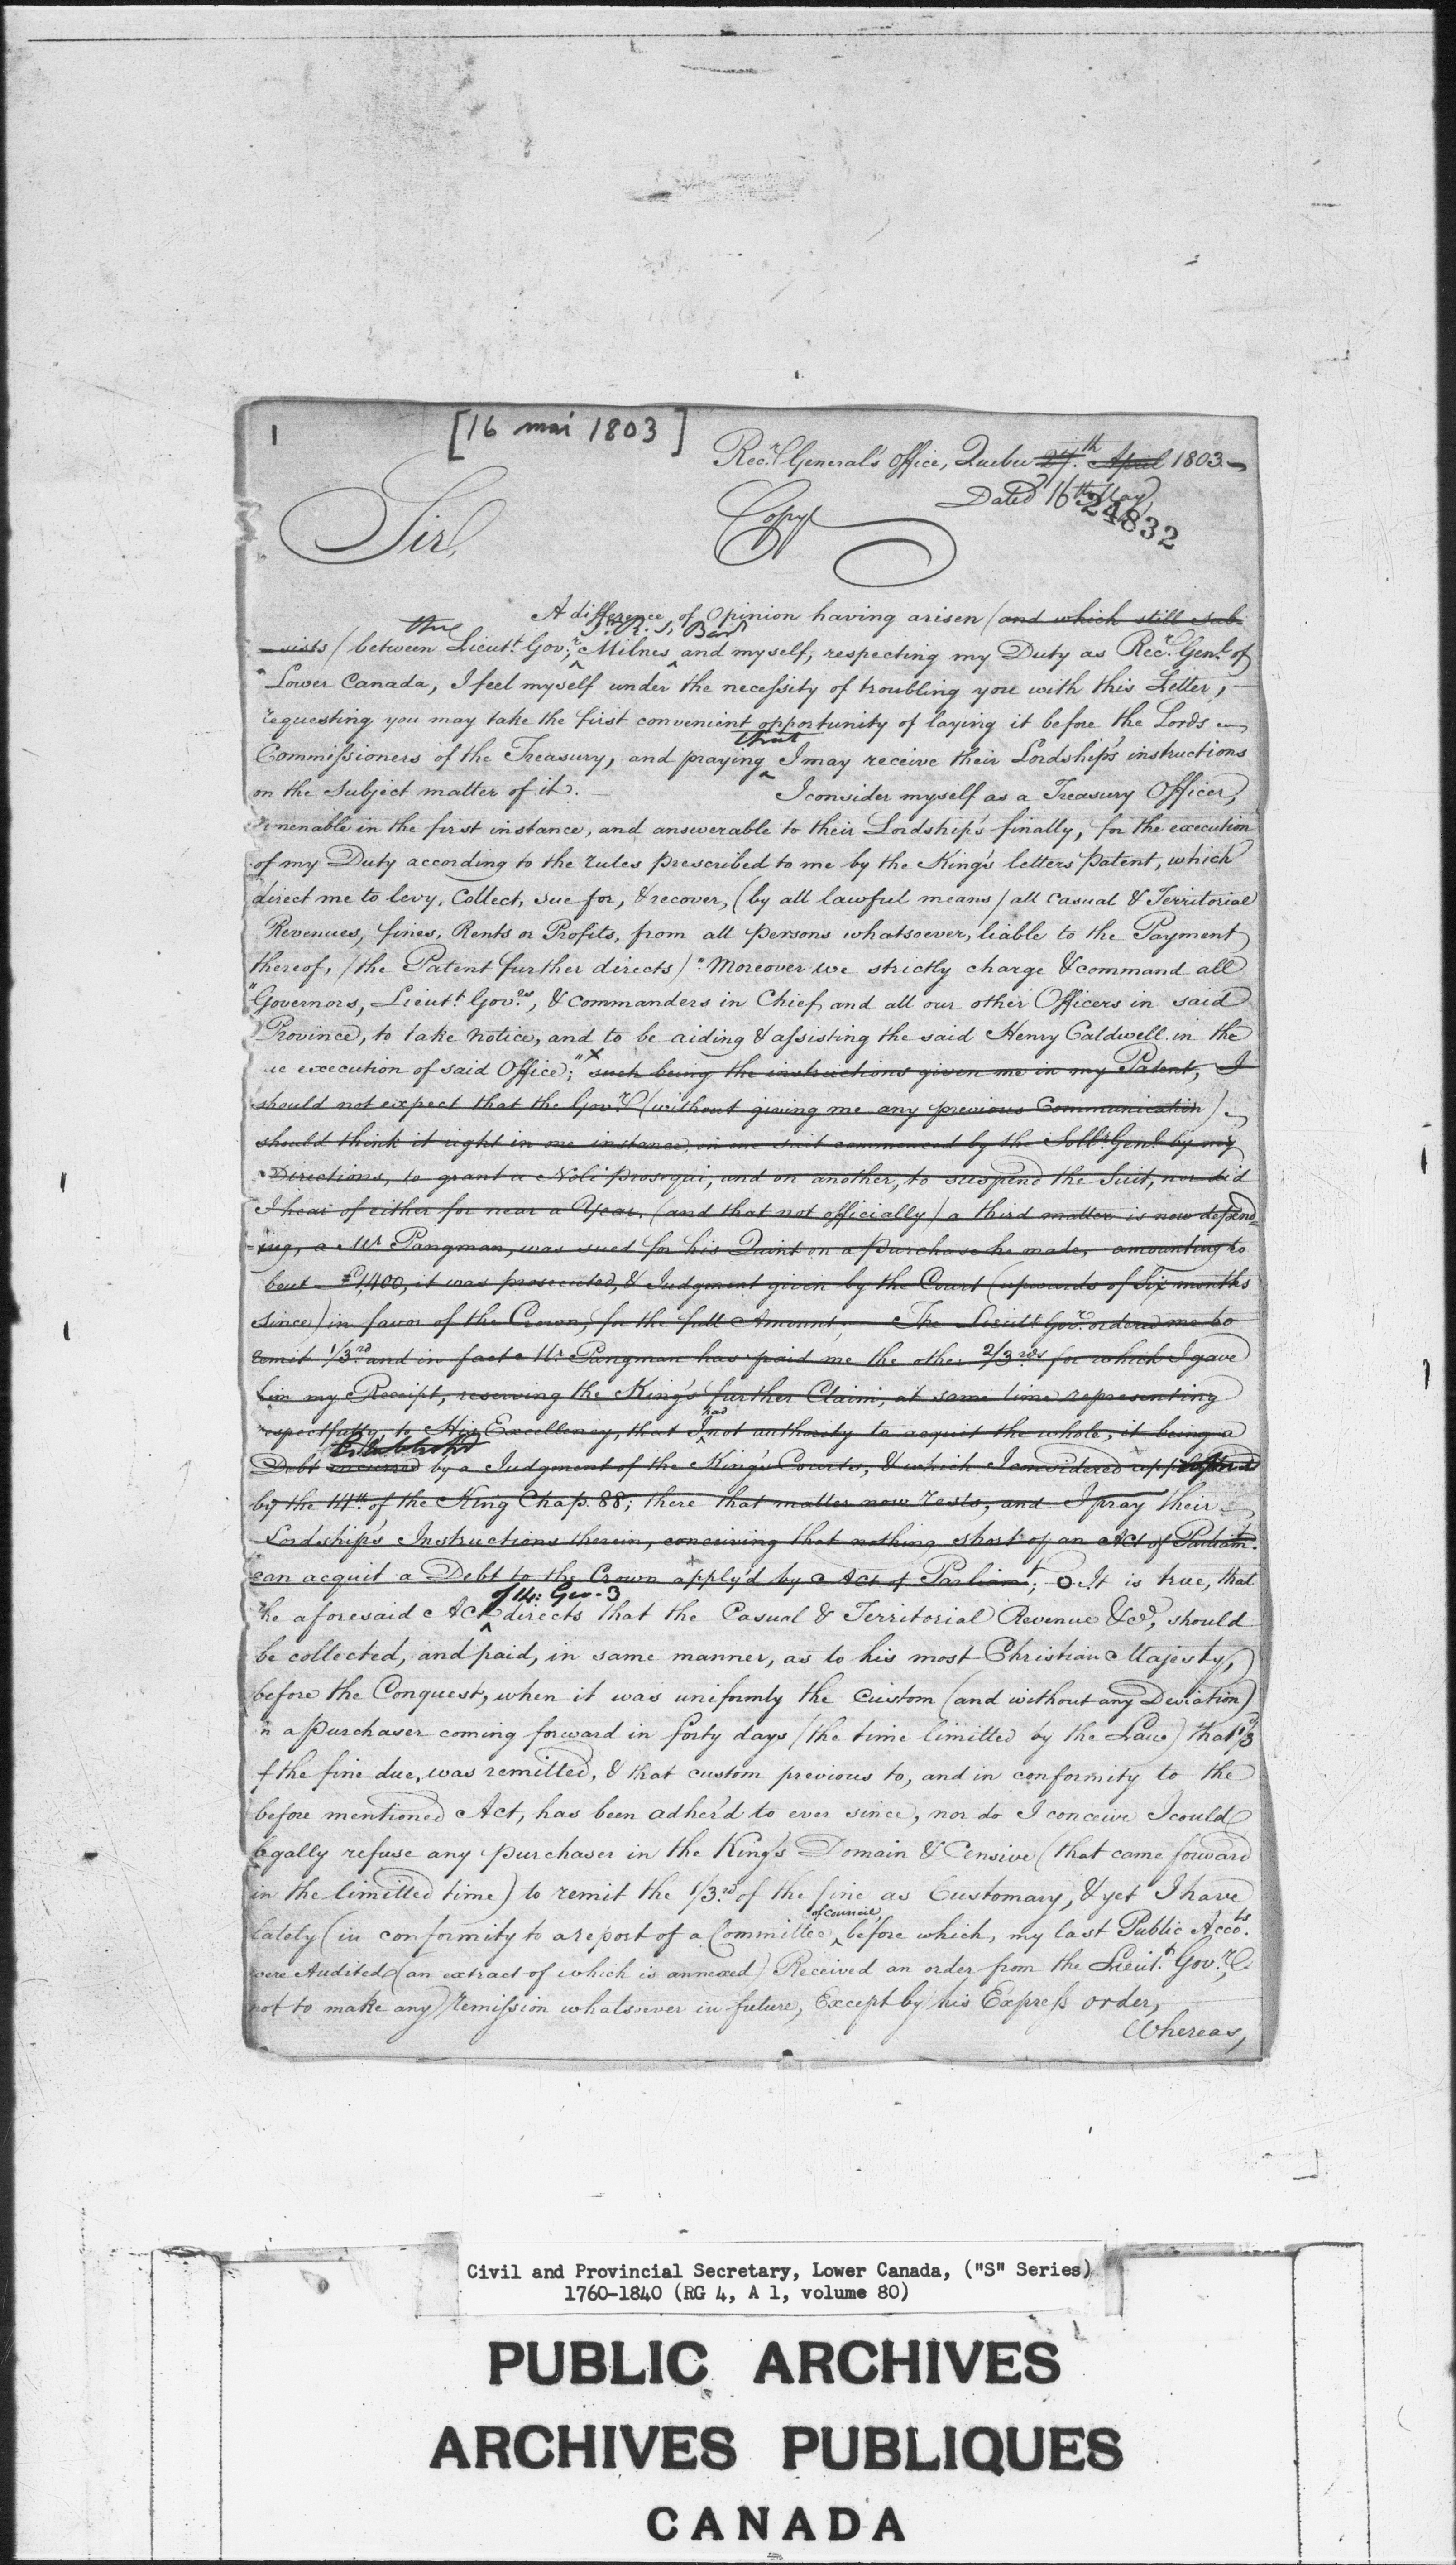 1
[16 mai 1803]
Rec.r General's Office, Quebec 27.th April 1803.
Dated 16th May
24832
Sir, Copy
A difference of Opinion having arisen (and which still sub-
the S.r R. S. Bar.t
-sists) between Lieut.t Gov.r, Milnes and myself, respecting my Duty as Rec.r Gen.l of
Lower Canada, I feel myself under the necessity of troubling you with this Letter,
requesting you may take the first convenient opportunity of laying it before the Lords
that
Commissioners of the Treasury, and praying I may receive their Lordship's instructions
on the Subject matter of it. I consider myself as a Treasury Officer,
amenable in the first instance, and answerable to their Lordship's finally, for the execution
of my Duty according to the rules prescribed to me by the King's letters Patent, which
direct me to levy, Collect, sue for, & recover, (by all lawful means) all Casual & Territorial
Revenues, fines, Rents or Profits, from all persons whatsoever, liable to the Payment
thereof, (the Patent further directs) "Moreover we strictly charge & command all
"Governors, Lieut.t Gov.rs, & Commanders in Chief, and all our other Officers in said
Province, to take notice, and to be aiding & assisting the said Henry Caldwell in the
execution of said Office;" x such being the instructions given me in my Patent, I
should not expect that the Gov.r (without giving me any previous Communication)
should think it right in one instance, in one suit commenced by the Soll.r Gen.l by my
Directions, to grant a Noli prosequi, and on another, to suspend the Suit, nor did
I hear of either for near a Year, (and that not officially) a third matter is now depend=
=ing, a Mr Pangman, was sued for his Quint on a purchase he made, amounting to
bout £1,400, it was prosecuted, & Judgment given by the Court (upwards of Six months
since) in favor of the Crown, for the full Amount; The Lieut.t Gov.r ordered me to
remit 1/3.rd and in fact Mr Pangman has paid me the other 2/3.rds for which I gave
him my Receipt, reserving the King's further Claim, at same time representing
had
respectfully to His Excellency, that I not authority to acquit the whole, it being a
Established
Debt incurred by a Judgment of the King's Courts, & which I considered
by the 14.th of the King Chap. 88; there that matter now rests, and I pray their
Lordship's Instructions therein, conceiving that nothing short of an Act of Parliam.t
can acquit a Debt to the Crown apply'd by Act of Parliam.t; O It is true, that
of 14: Geo. 3
the aforesaid Act directs that the Casual & Territorial Revenue &c.a, should
be collected, and paid, in same manner, as to his most Christian Majesty,
before the Conquest, when it was uniformly the Custom (and without any Deviation)
n a purchaser coming forward in forty days (the time limitted by the Law) that 1/3
f the fine due, was remitted, & that custom previous to, and in conformity to the
before mentioned Act, has been adher'd to ever since, nor do I conceive I could
legally refuse any purchaser in the King's Domain & Censive (that came forward
in the limitted time) to remit the 1/3.rd of the fine as Customary, & yet I have
of Council,
lately (in conformity to a report of a Committee before which, my last Public Acco.ts
were Audited (an extract of which is annexed) Received an order from the Lieut.t Gov.r,
not to make any remission whatsoever in future, Except by his Express order,
Whereas,
Civil and Provincial Secretary, Lower Canada, ("S" Series)
1760-1840 (RG 4, A 1, volume 80)
PUBLIC ARCHIVES
ARCHIVES PUBLIQUES
CANADA